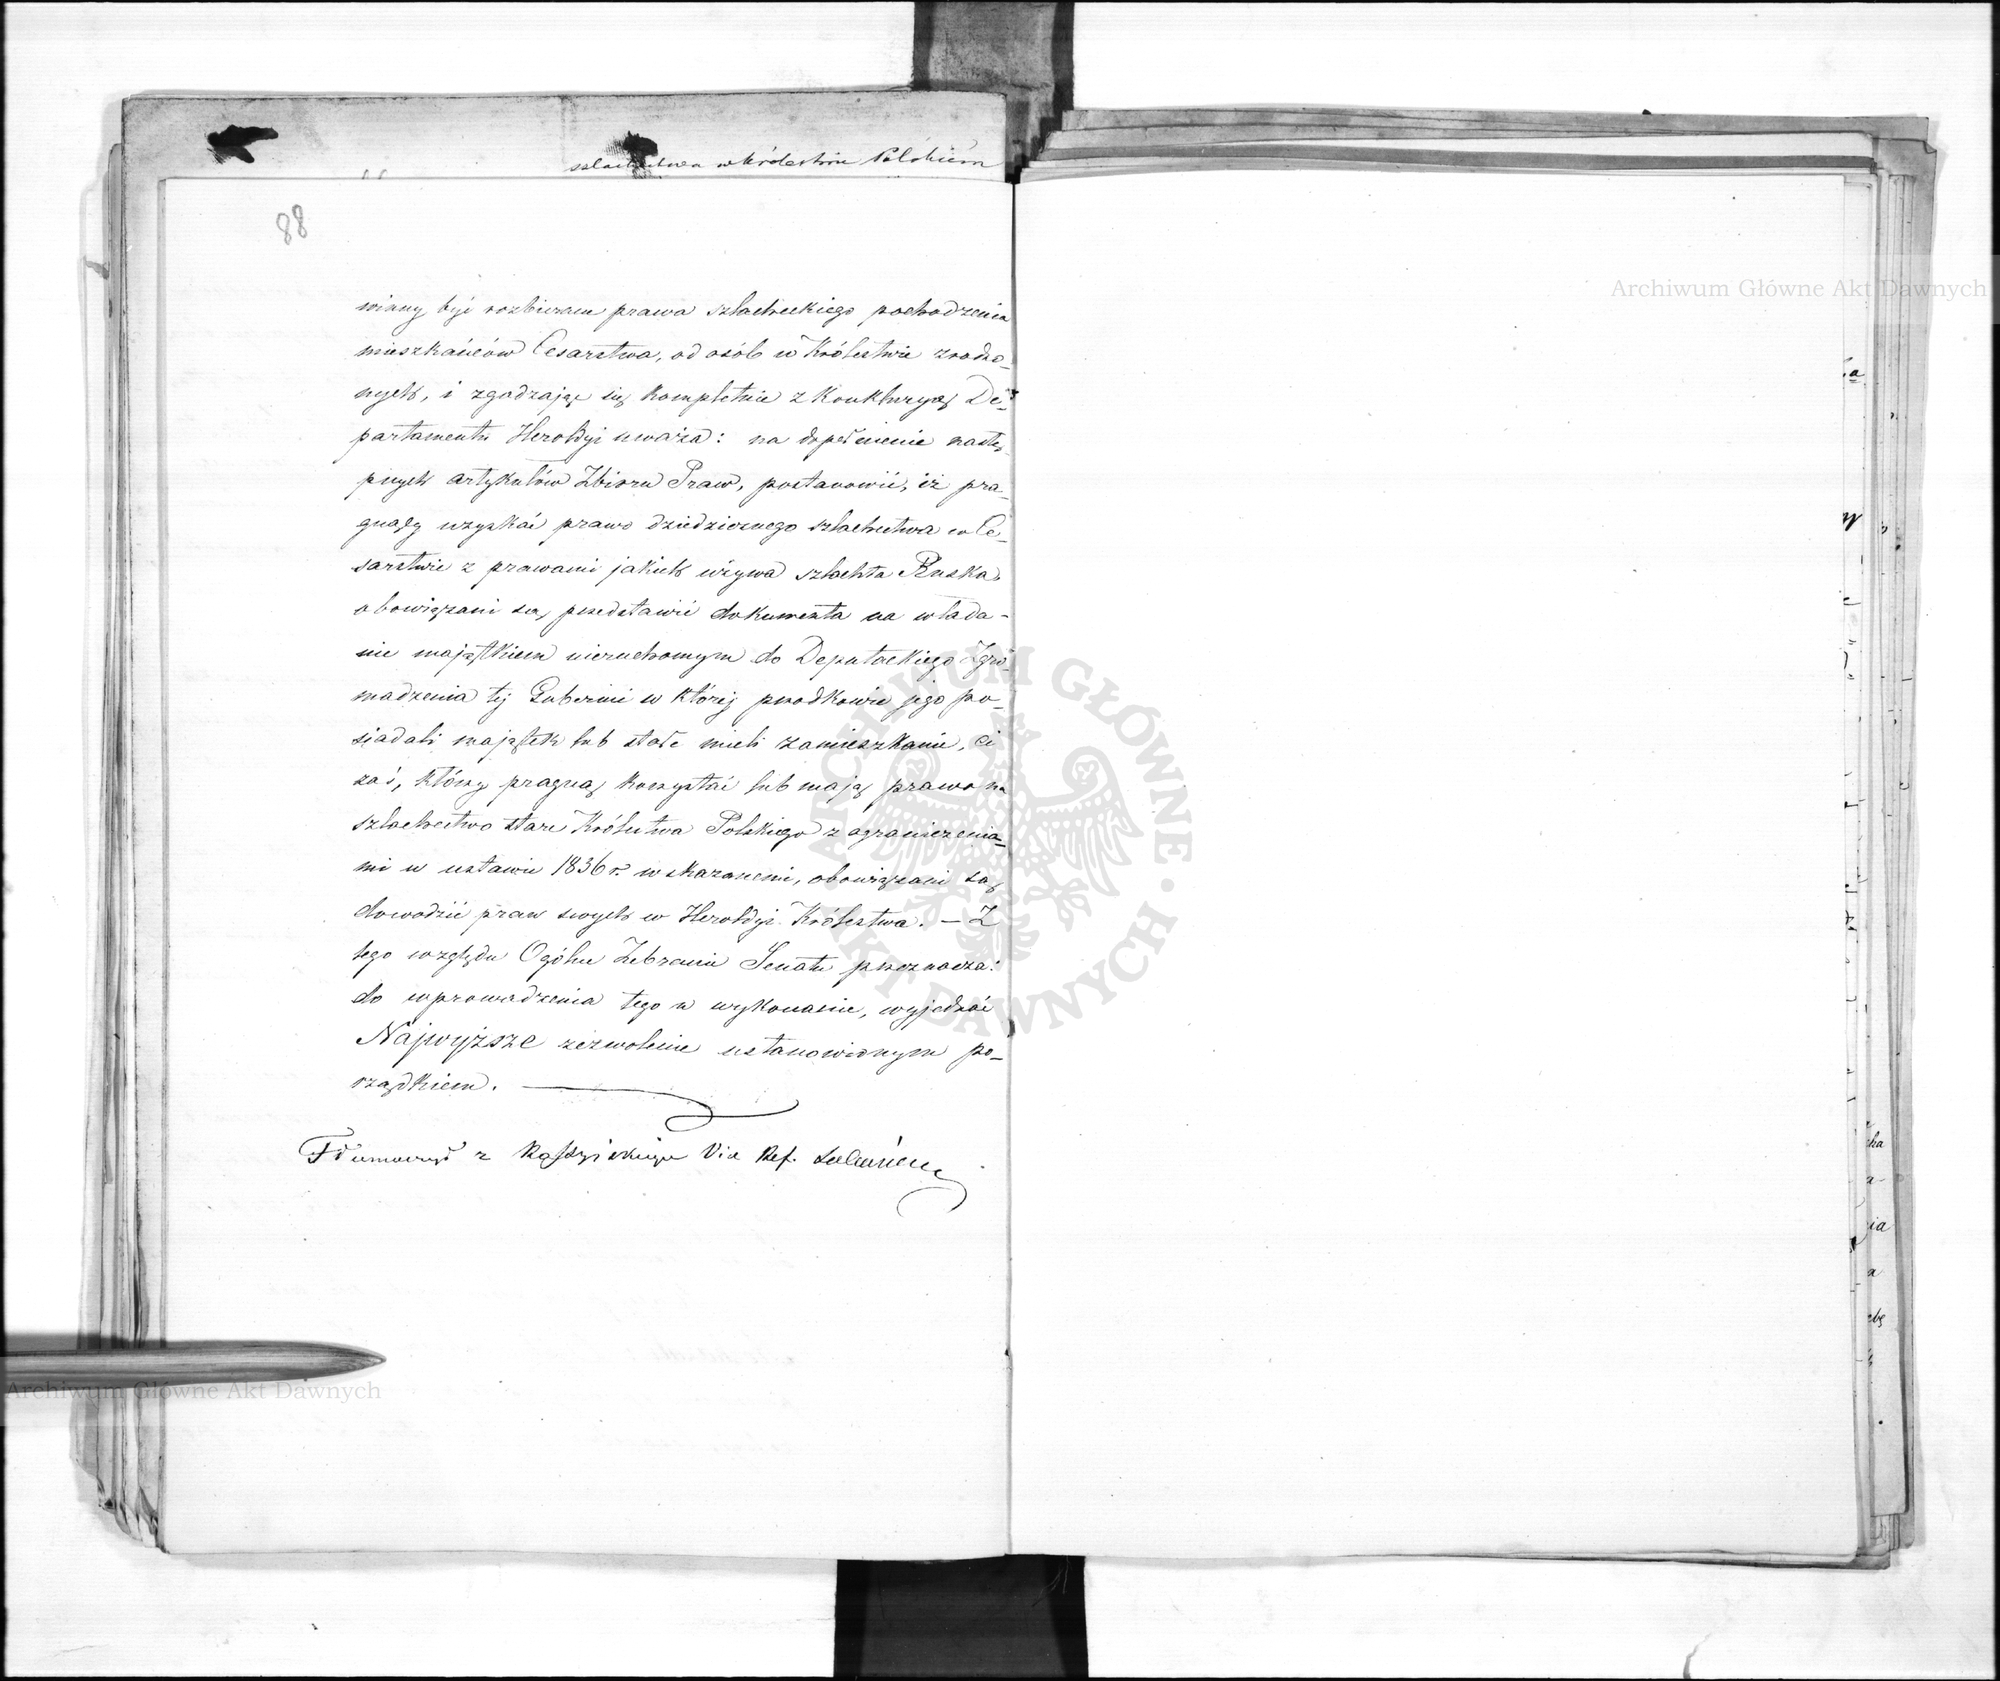 szlachectwa w Królestwie Polskiém
88
winny być rozbierane prawa szlacheckiego pochodzenia
mieszkańców Cesarstwa, od osób w Królestwie zrodzo-
nych, i zgadzając się kompletnie z Konkluzyą De-
partamentu Heroldyi uważa: na dopełnienie nastę-
pnych artykułów Zbioru Praw, postanowić, iż pra-
gnący uzyskać prawo dziedzicznego szlachectwa w Ce-
sarstwie z prawami jakich używa szlachta Ruska,
obowiązani są, przedstawić dokumenta na włada-
nie majątkiem nieruchomym do Deputackiego Zgro-
madzenia tej Gubernii w której przodkowie jego po-
siadali majątek lub stałe mieli zamieszkanie, ci
zaś, którzy pragną korzystać lub mają prawo na
szlachectwo stare Królestwa Polskiego z ograniczenia-
mi w ustawie 1836 r. wskazanemi, obowiązani są
dowodzić praw swych w Heroldyi Królestwa. — Z
tego względu Ogólne Zebranie Senatu przeznacza:
do wprowadzenia tego w wykonanie, wyjednać
Najwyższe zezwolenie ustanowionym po-
rządkiem.
Tłumaczył z Rossyjskiego Vice Ref.
Archiwum Główne Akt Dawnych
Archiwum Główne Akt Dawnych
ARCHIWUM GŁÓWNE AKT DAWNYCH